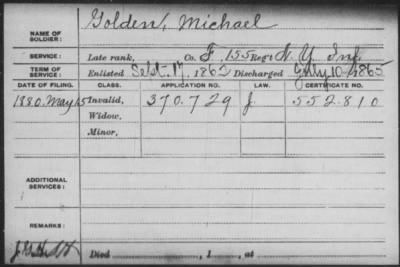 Golden, Michael
NAME OF SOLDIER:
SERVICE: Late rank, Co. F, 155 Reg't N. Y. Inf.
TERM OF SERVICE: Enlisted Sept. 17, 1862 Discharged July 10, 1865
DATE OF FILING. CLASS. APPLICATION NO. LAW. CERTIFICATE NO.
1880. May 15 Invalid, 370.729 J. 552.810
Widow,
Minor,
ADDITIONAL SERVICES:
REMARKS:
Died , 1 , at